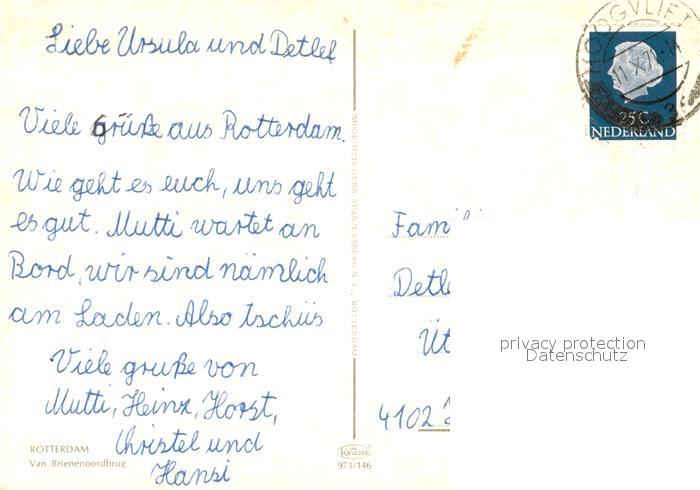 Liebe Ursula und Detlef
Viele Grüße aus Rotterdam.
Wie geht es euch, uns geht
es gut. Mutti wartet an
Bord, wir sind nämlich
am Laden. Also tschüs
Viele gruße von
Mutti, Heinz, Horst,
Christel und
Hansi
ROTTERDAM
Van Brienenoordbrug
IMPORTEUR GEBR. SPANJERSBERG N.V., ROTTERDAM
KRÜGER
971/146
HOOGVLIET
11.X.71
25 C
NEDERLAND
Famil
Detle
Üt
4102
privacy protection
Datenschutz